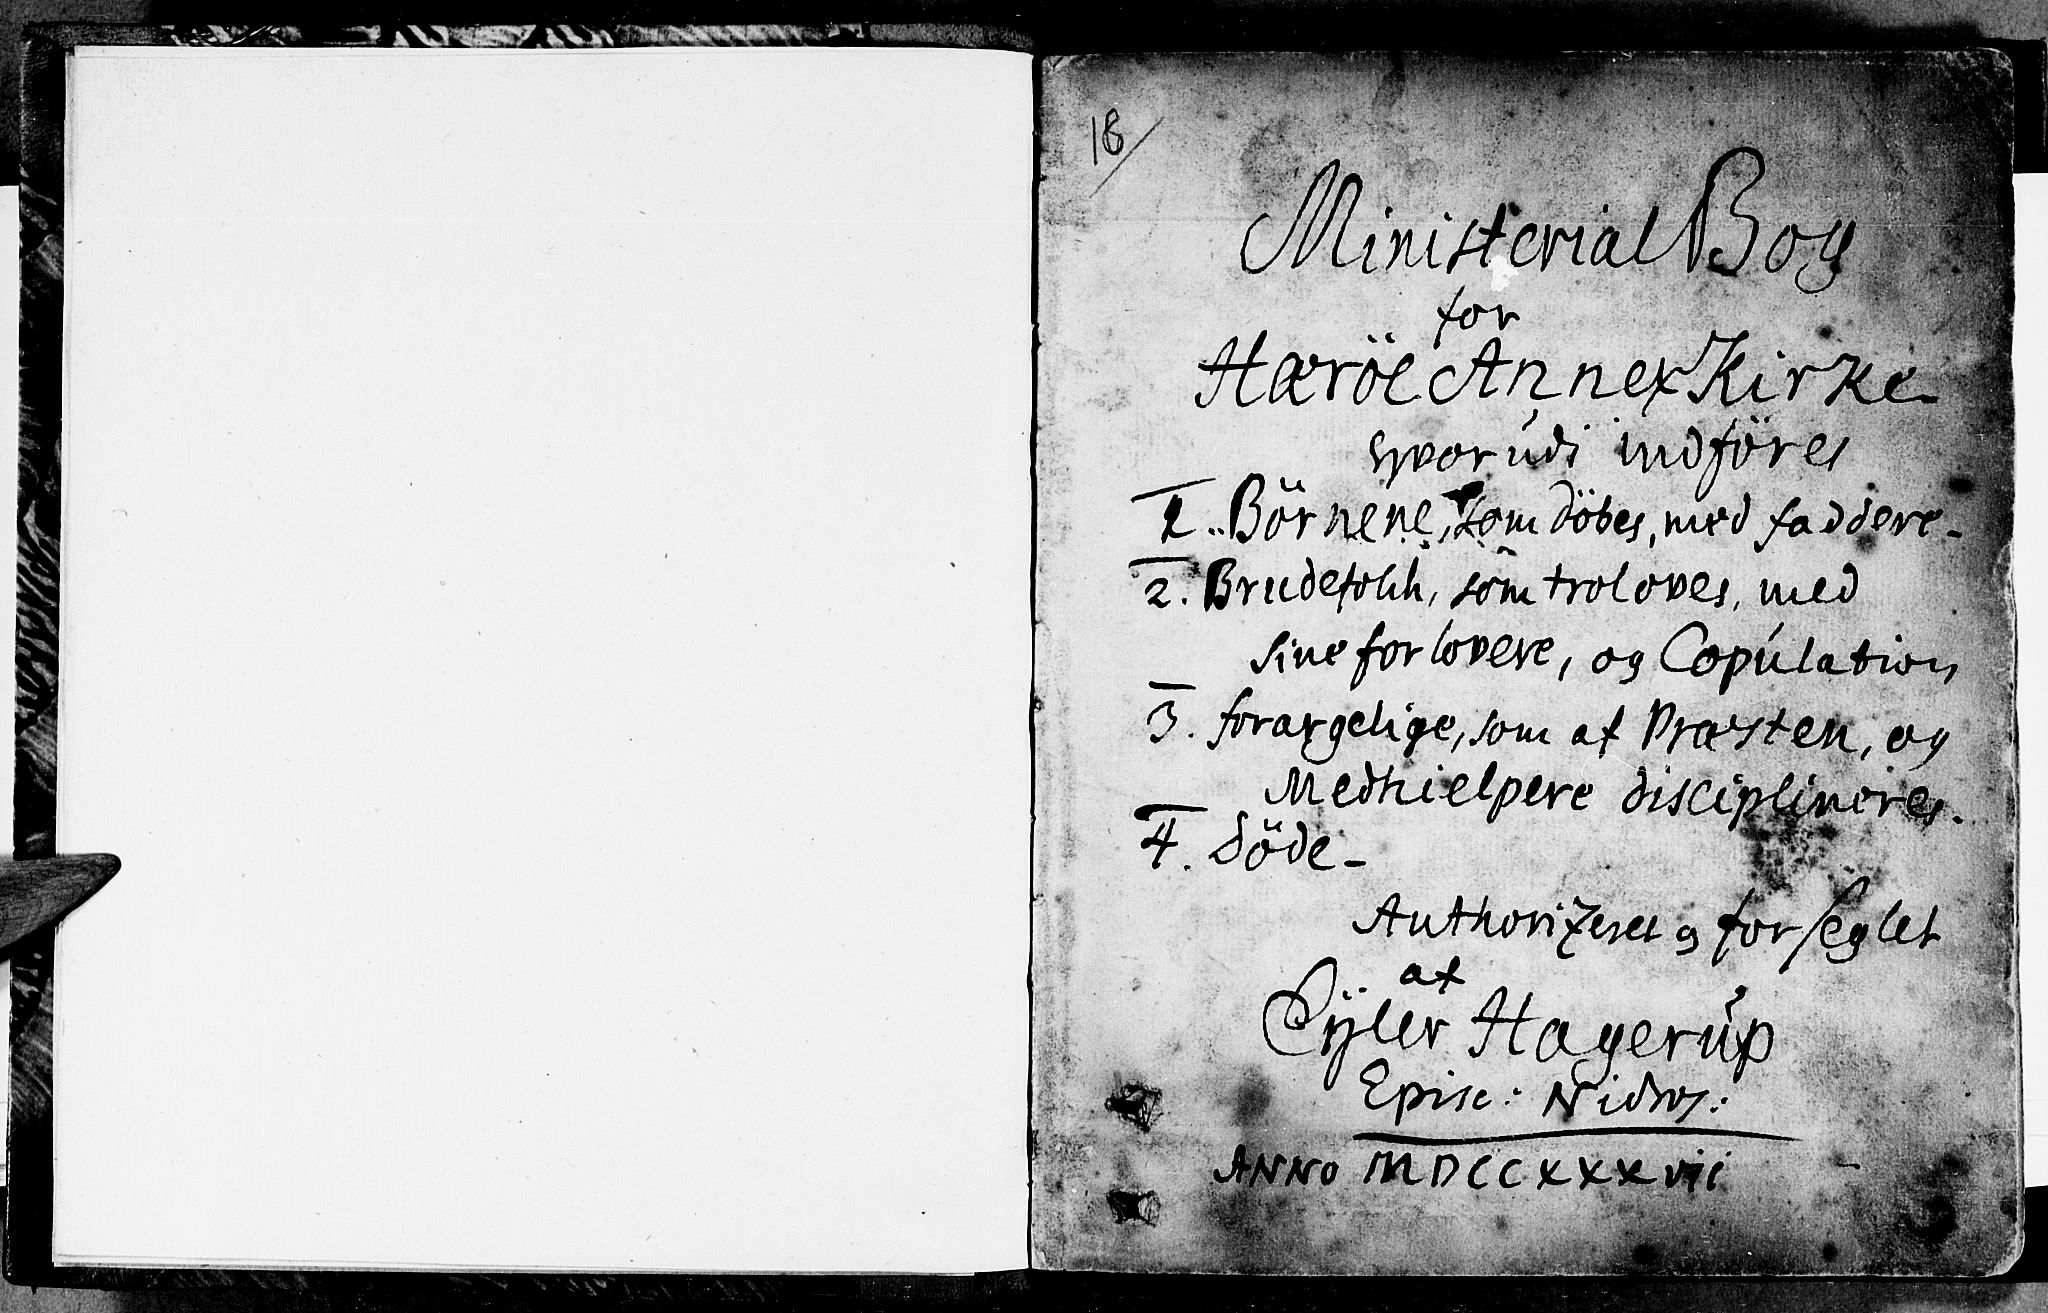 18/
Ministerial Bog
for
Hæröe Annex Kirke
hvorudi indföres
1. Börnene, som döbes, med faddere.
2. Brudefolch, som troloves, med
sine forlovere, og Copulation
3. forargelige, som af Præsten, og
Medhielpere disciplineres.
4. Döde
Authorizeret og forseglet
af
Eÿler Hagerup
Episc: Nidros:
ANNO MDCCXXXVII